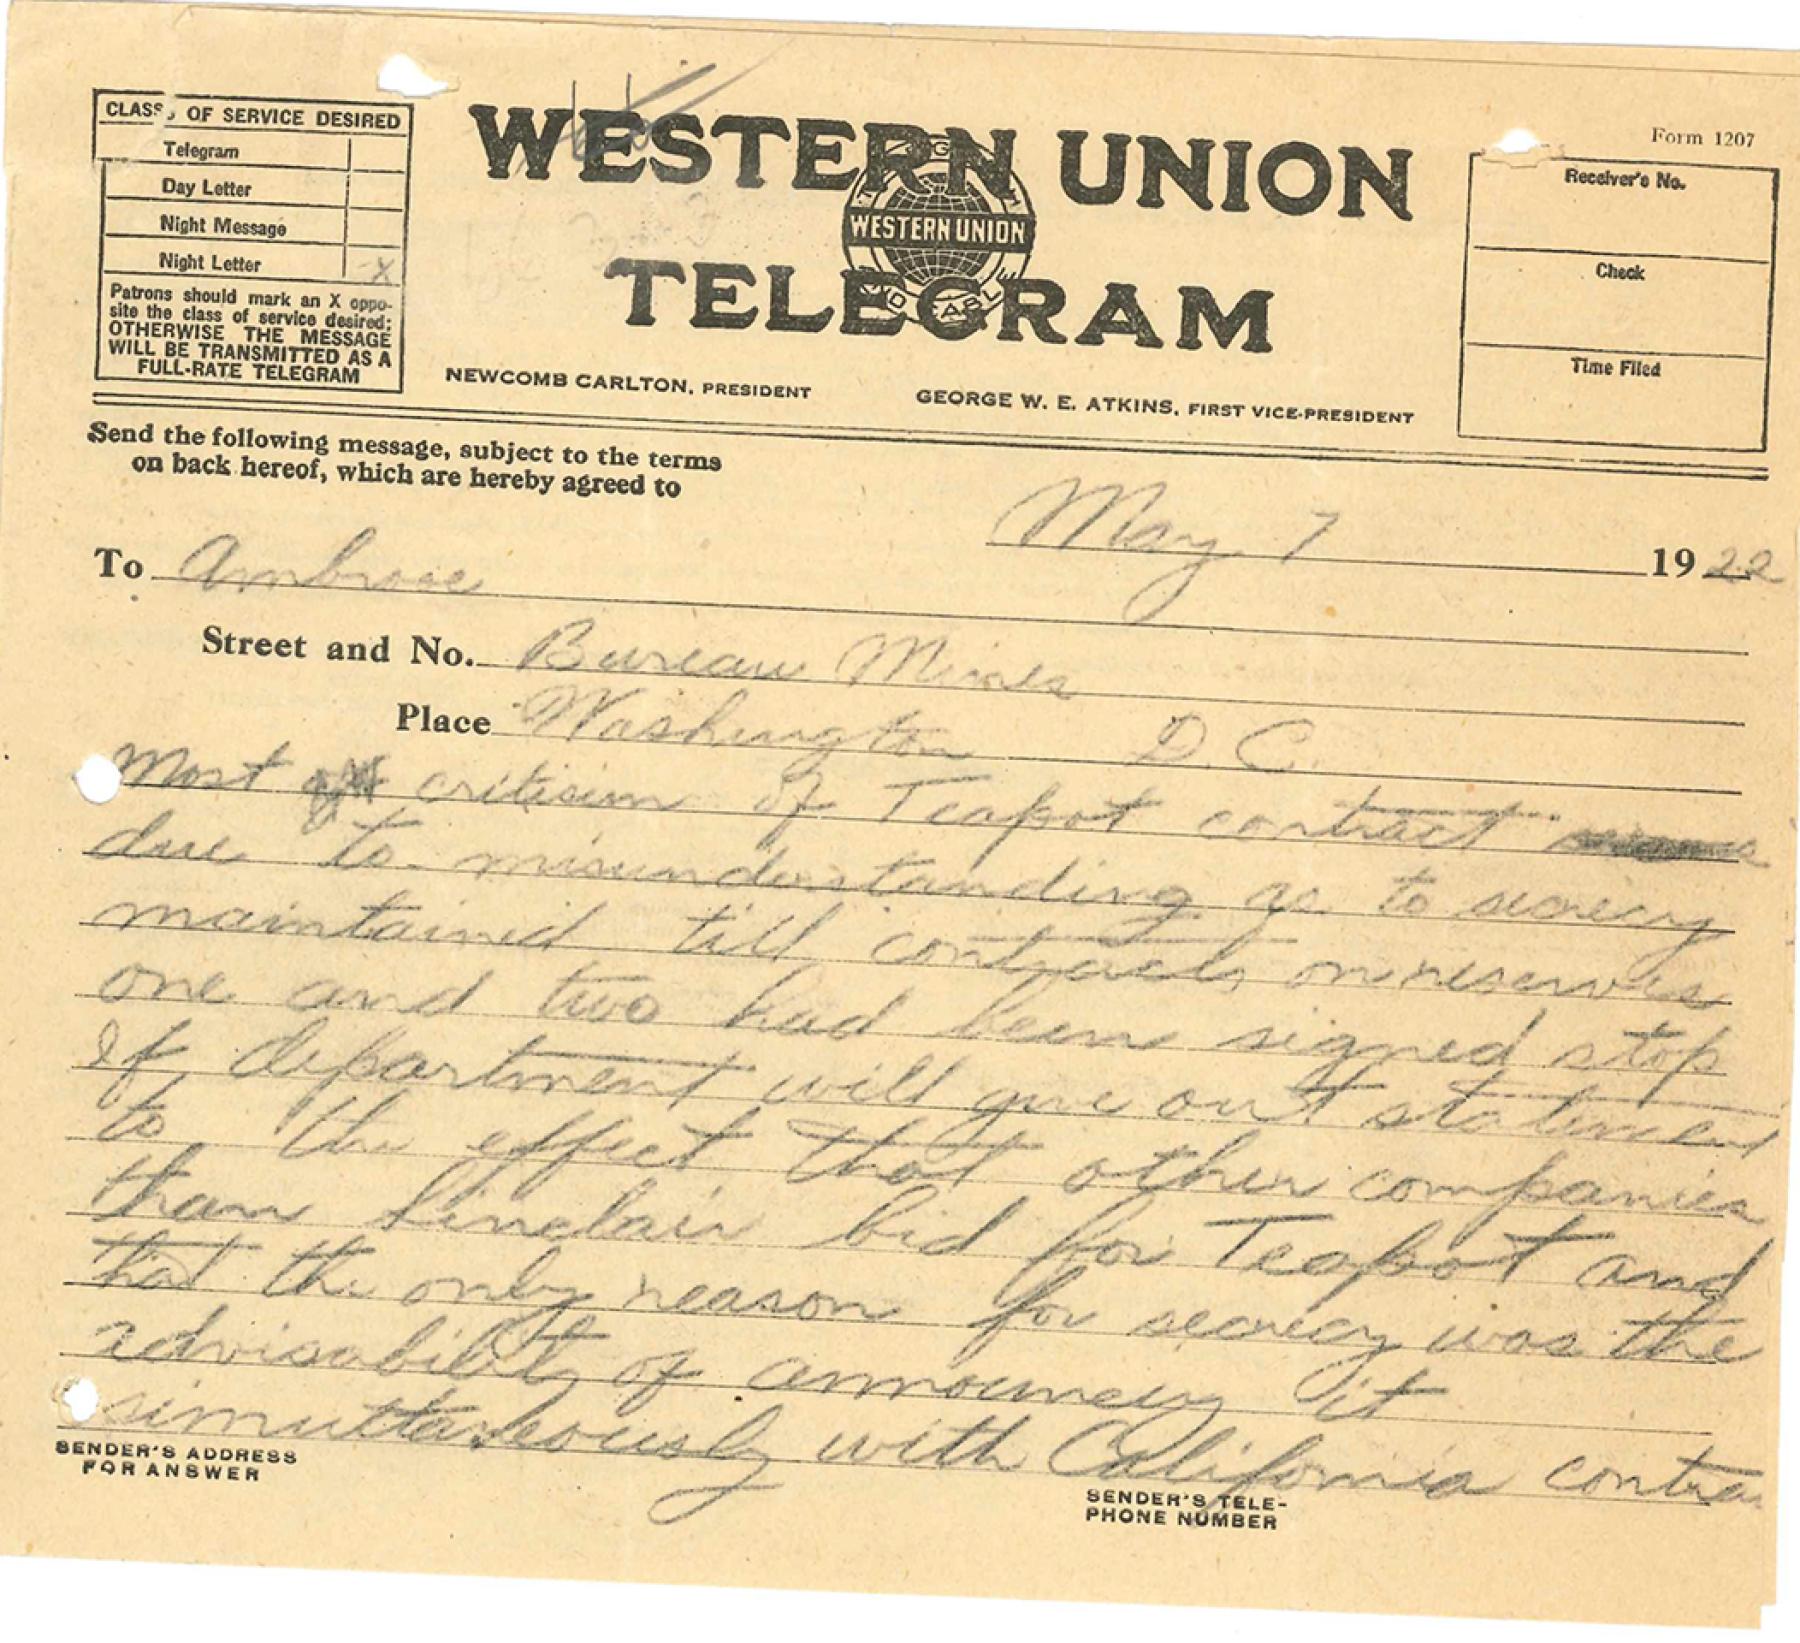 CLASS OF SERVICE DESIRED
Telegram
Day Letter
Night Message
Night Letter X
Patrons should mark an X oppo-
site the class of service desired:
OTHERWISE THE MESSAGE
WILL BE TRANSMITTED AS A
FULL-RATE TELEGRAM
WESTERN UNION
WESTERN UNION
TELEGRAM
NEWCOMB CARLTON, PRESIDENT
GEORGE W. E. ATKINS, FIRST VICE-PRESIDENT
Form 1207
Receiver's No.
Check
Time Filed
Send the following message, subject to the terms
on back hereof, which are hereby agreed to
May 7 1922
To Ambrose
Street and No. Bureau Mines
Place Washington D.C.
Most criticism of Teapot contract
due to misunderstanding as to secrecy
maintained till contracts on reserves
one and two had been signed stop
If department will give out statement
to the effect that other companies
than Sinclair bid for Teapot and
that the only reason for secrecy was the
advisability of announcing it
simultaneously with California contra
SENDER'S ADDRESS
FOR ANSWER
SENDER'S TELE-
PHONE NUMBER